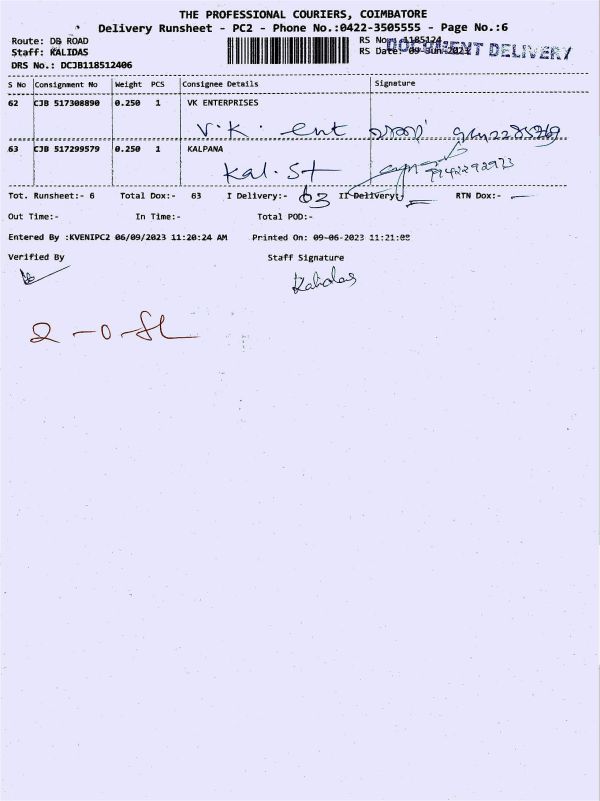 THE PROFESSIONAL COURIERS, COIMBATORE
Delivery Runsheet - PC2 - Phone No.:0422-3505555 - Page No.:6
Route: DB ROAD
RS No.: 1185124
Staff: KALIDAS
RS Date: 09-Jun-2023
DOCUMENT DELIVERY
DRS No.: DCJB118512406
S No Consignment No Weight PCS Consignee Details Signature
62 CJB 517308890 0.250 1 VK ENTERPRISES
V.K. ent
63 CJB 517299579 0.250 1 KALPANA
Kal. St 9942292973
Tot. Runsheet:- 6 Total Dox:- 63 I Delivery:- 63 II Delivery:- RTN Dox:-
Out Time:- In Time:- Total POD:-
Entered By :KVENIPC2 06/09/2023 11:20:24 AM Printed On: 09-06-2023 11:21:08
Verified By Staff Signature
Kalidas